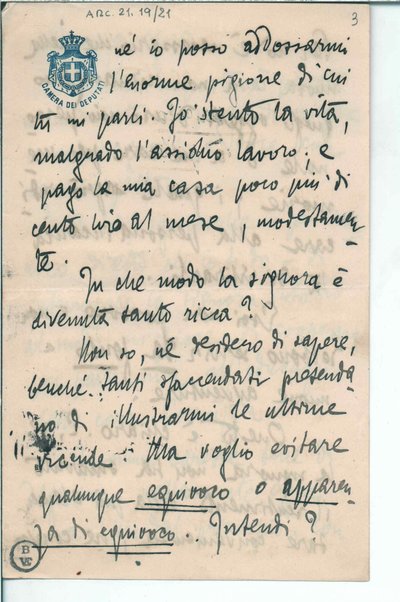 ARC. 21. 19/21
3
CAMERA DEI DEPUTATI
né io posso addossarmi
l'enorme pigione di cui
tu mi parli. Io stento la vita,
malgrado l'assiduo lavoro; e
pago la mia casa poco più di
cento lire al mese, modestamen-
te.
In che modo la signora è
divenuta tanto ricca?
Non so, né desidero di sapere,
benché tanti sfaccendati pretenda-
no di illustrarmi le ultime
vicende. Ma voglio evitare
qualunque equivoco o apparen-
za di equivoco. Intendi?
B
VE